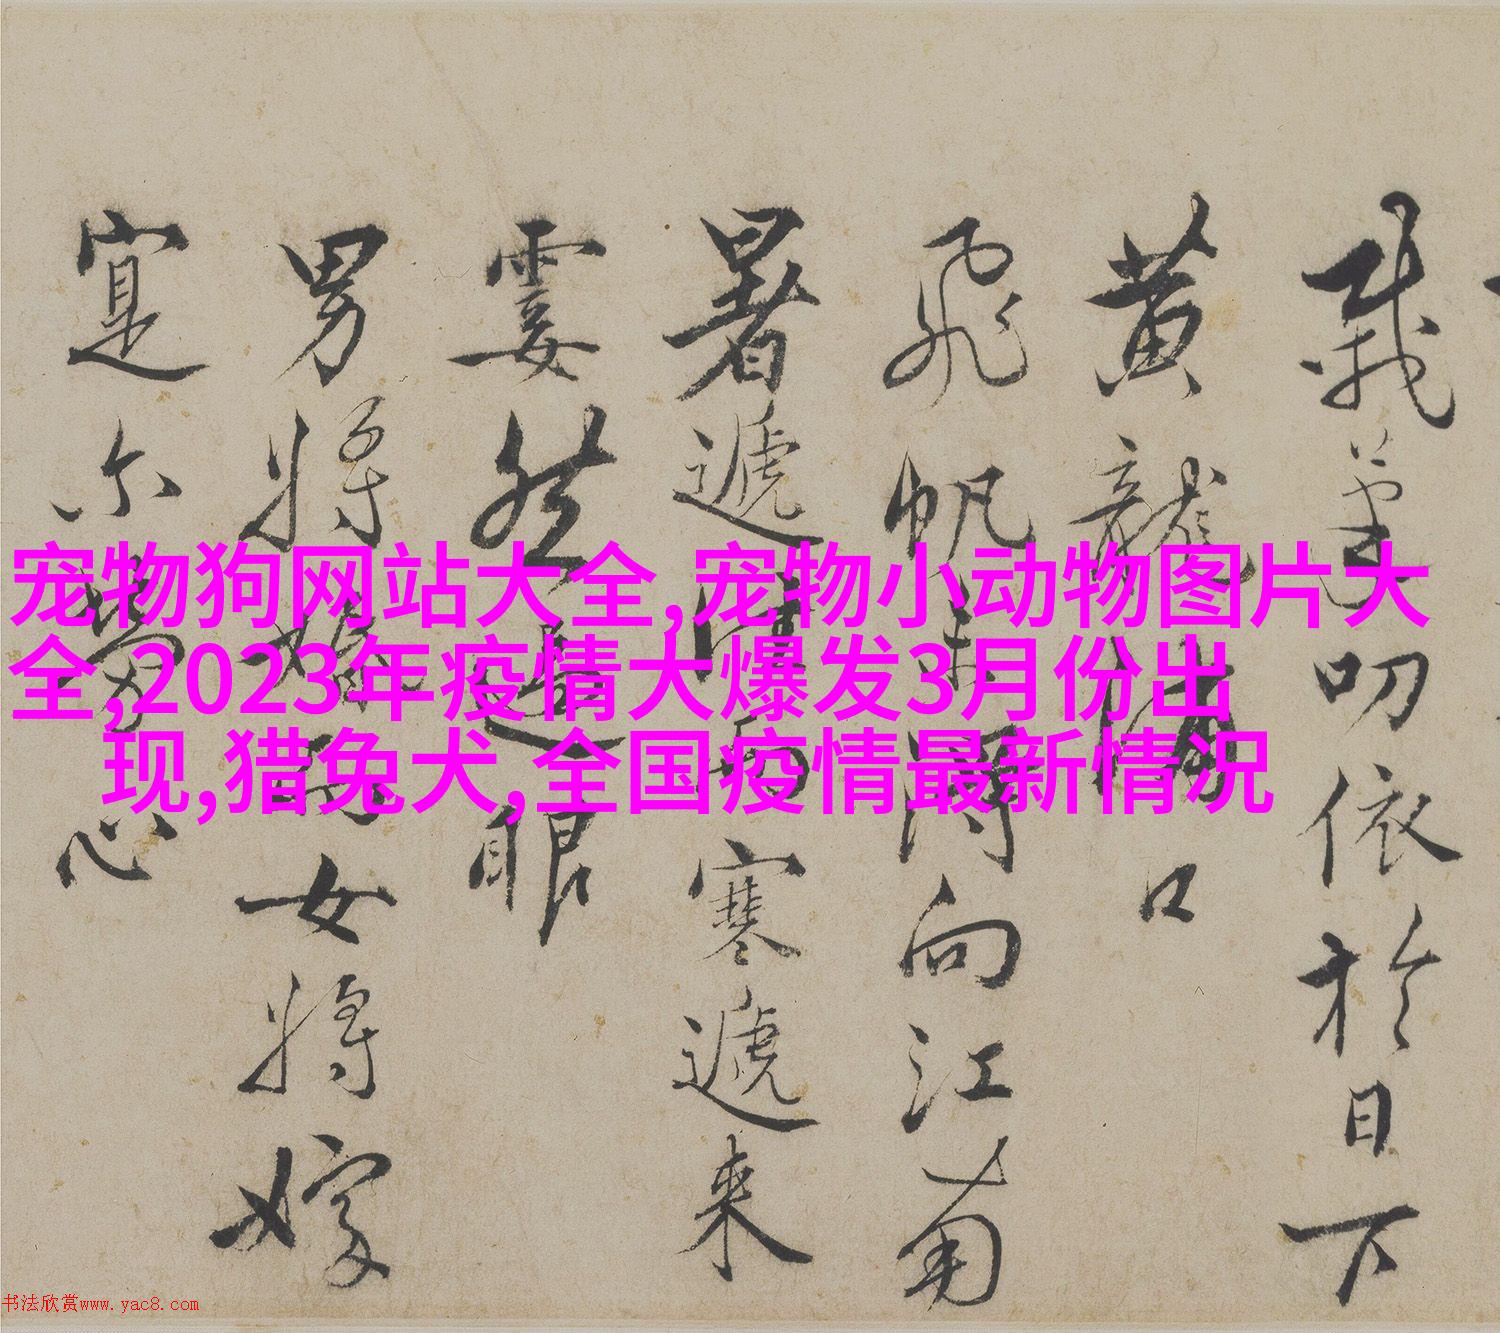 宠物狗网站大全,宠物小动物图片大
全,2023年疫情大爆发3月份出
现,猎兔犬,全国疫情最新情况
叨依於日下
黄龍
口
飛帆
向江南
暑遞
寒遞来
霎然
眼
男將
女將嫁
寔尔
心
书法欣赏www.yac8.com